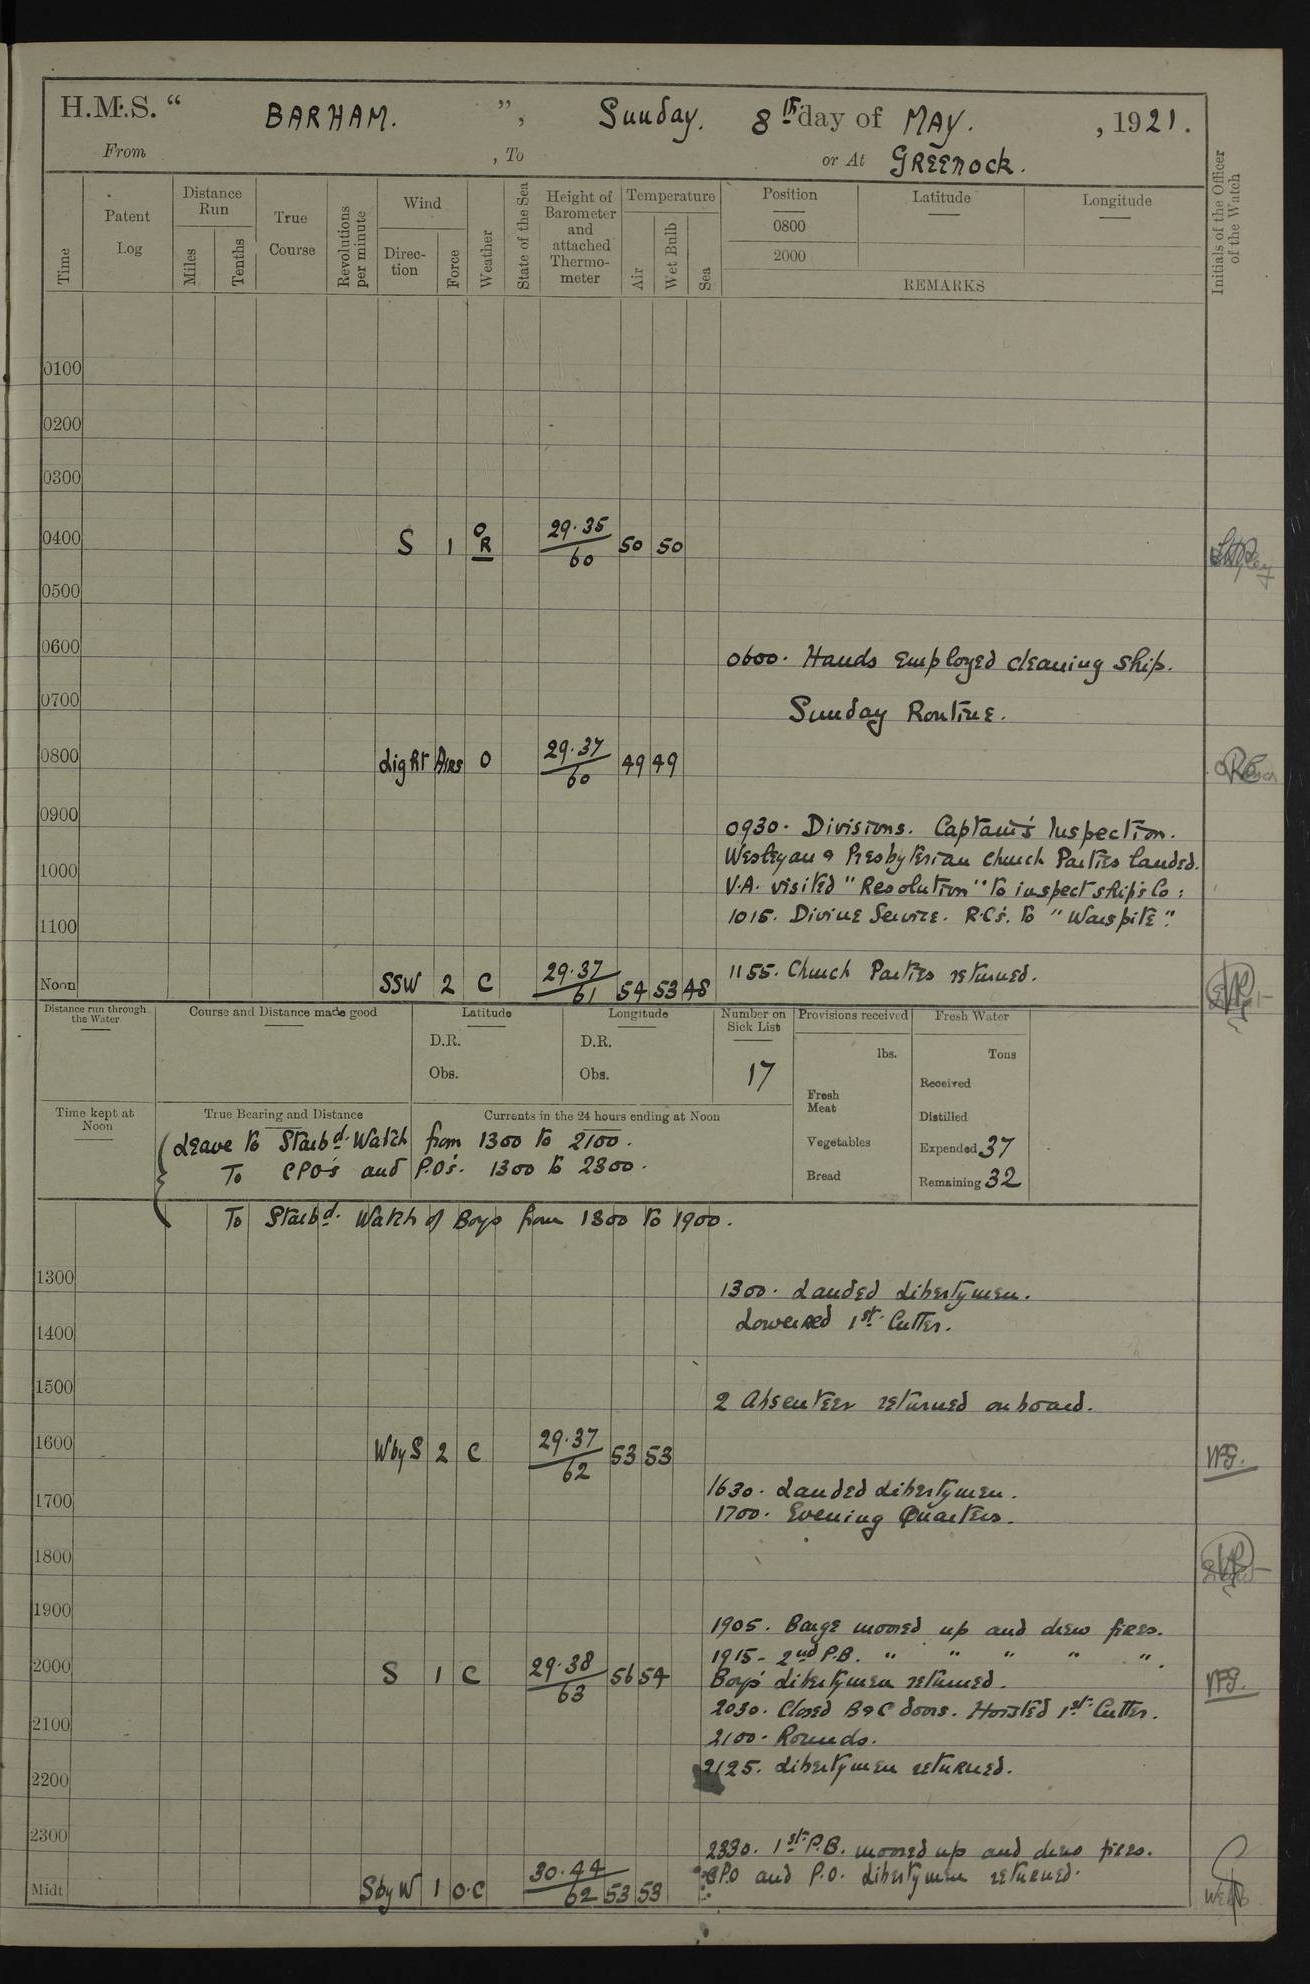 H.M.S. “ BARHAM. ”, Sunday, 8th day of MAY. , 1921.
From , To or At GREENOCK.
Time Patent Log Distance Run Miles Tenths True Course Revolutions per minute Wind Direc-tion Force Weather State of the Sea Height of Barometer and attached Thermo-meter Temperature Air Wet Bulb Sea Position Latitude Longitude Initials of the Officer of the Watch
0800
2000
REMARKS
0100
0200
0300
0400 S 1 O R 29.35/60 50 50
0500
0600 0600. Hands Employed cleaning Ship.
0700 Sunday Routine.
0800 Light Airs O 29.37/60 49 49
0900 0930. Divisions. Captain's Inspection.
Wesleyan & Presbyterian Church Parties landed.
1000 V.A. visited "Resolution" to inspect ship's Co:
1015. Divine Service. R.C's. to "Warspite".
1100
Noon SSW 2 C 29.37/61 54 53 48 1155. Church Parties returned.
Distance run through the Water Course and Distance made good Latitude Longitude Number on Sick List Provisions received Fresh Water
D.R. D.R. lbs. Tons
Obs. Obs. 17 Received
Fresh Meat
Time kept at Noon True Bearing and Distance Currents in the 24 hours ending at Noon Distilled
Leave to Starbd. Watch from 1300 to 2100. Vegetables Expended 37
To CPO's and P.O's. 1300 to 2300. Bread Remaining 32
To Starbd. Watch of Boys from 1300 to 1900.
1300 1300. Landed Libertymen.
1400 Lowered 1st. Cutter.
1500 2 Absentees returned on board.
1600 W by S 2 C 29.37/62 53 53 WG.
1630. Landed Libertymen.
1700 1700. Evening Quarters.
1800
1900 1905. Barge moored up and drew fires.
1915 - 2nd P.B. " " " " ".
2000 S 1 C 29.38/63 56 54 Boys' Libertymen returned.
2030. Closed B & C doors. Hoisted 1st. Cutter.
2100 2100. Rounds.
2125. Libertymen returned.
2200
2300 2330. 1st. P.B. moored up and drew fires.
Midt. S by W 1 O.C 30.44/62 53 53 CPO and P.O. Libertymen returned.